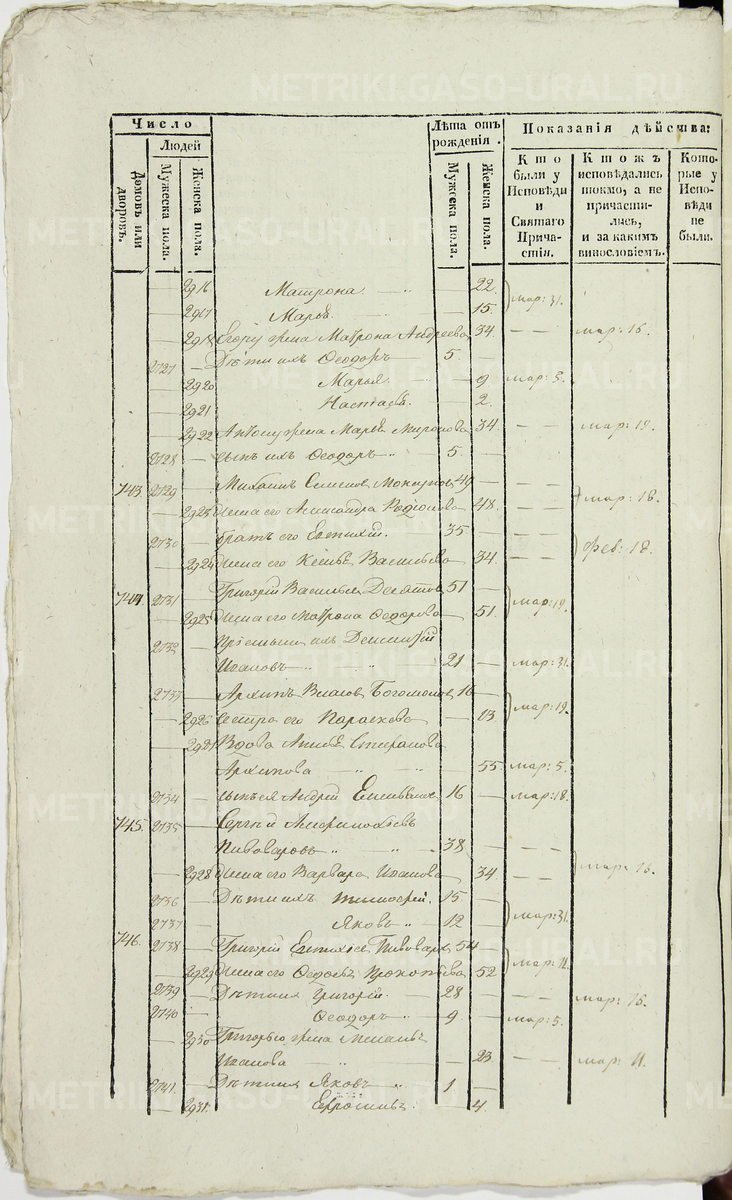 Число
Людей
Домовъ или дворовъ.
Мужеска пола.
Женска пола.
Лѣта отъ рожденія.
Мужеска пола.
Женска пола.
Показанія дѣйства:
Кто были у Исповѣди и Святаго Прича-стія.
Ктожъ исповѣдались токмо, а не причасти-лись, и за какимъ винословіемъ.
Кото-рые у Испо-вѣди не были.
2916 Матрона 22 мар: 31.
2917 Марья 15.
2918 Егору жена Матрона Андреева 34 — — мар: 16.
2727 Дѣти ихъ Ѳеодоръ 5. —
2920 Марья 9 мар: 5.
2921 Настасья 2.
2922 жена Марья 34 — — мар: 19.
2728 сынъ ихъ Ѳеодоръ 5. —
743 2729 Михаилъ 49 — — мар: 18.
2923 жена его Александра Родіонова 48. — —
2730 братъ его Евтихій. 35 — — фев: 18.
2924 жена его Васильева 34. — —
744 2731 Григорій Васильевъ 51 — мар: 19.
2925 жена его Матрона Ѳедорова 51.
2732 Пріемышъ ихъ Димитрій
Ивановъ 21 — мар: 31.
2733 Архипъ Власовъ Богомоловъ 16 — мар: 19.
2926 сестра его Параскова 13
2927 Вдова Стефанова
Архипова 55 мар: 5.
2734 сынъ ея Андрей 16 — мар: 18.
745. 2735 Сергѣй
Пивоваровъ 38
2928 жена его Варвара Иванова 34 мар: 16.
2736 Дѣти ихъ Тимоѳей. 15 — мар: 31.
2737 Яковъ 12 —
746. 2738 Григорій Евтихіевъ Пивоваровъ 54 мар: 11.
2929 жена его Ѳедосья Прокопьева 52
2739 Дѣти ихъ Григорій. 28 — — мар: 16.
2740 Ѳеодоръ 9 — мар: 5.
2930 Григорью жена
Иванова 23 — — мар: 11.
2741. Дѣти ихъ Яковъ 1 —
2931. 4
METRIKI.GASO-URAL.RU